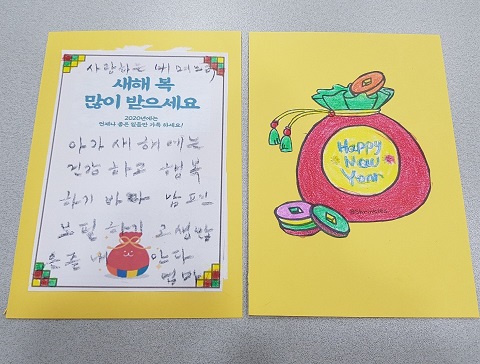 사랑하는 내 며느리
새해 복
많이 받으세요
2020년에는
언제나 좋은 일들만 가득 하세요!
아가 새해에는
건강 하고 행복
하기 바라 남편
보필 하기 고생많
은줄 내 안다
Happy
Naw
Year